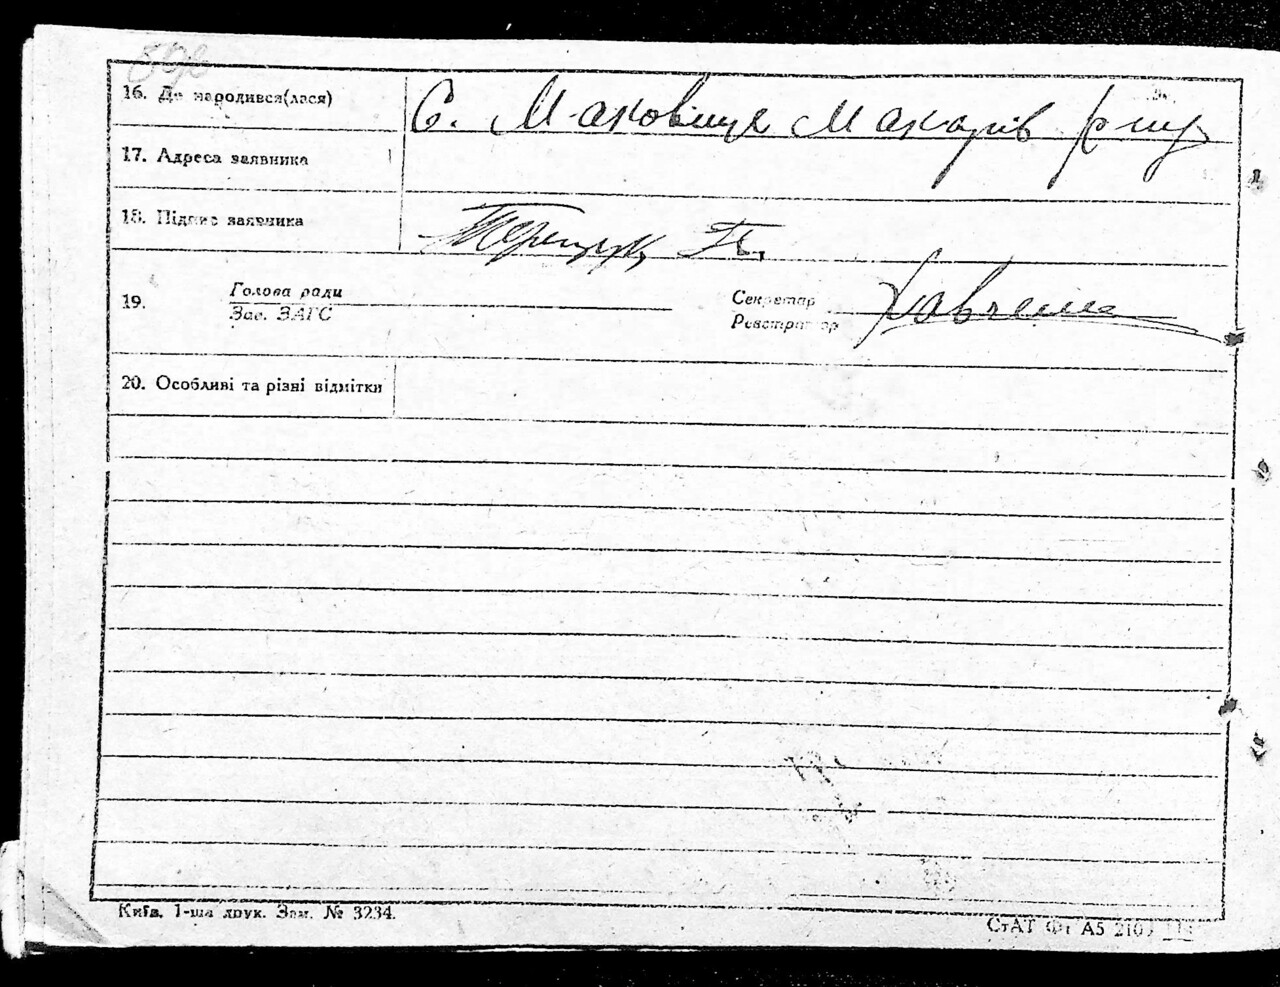 592
16. Де народився(лася) С. Маковище Макарів р-ну
17. Адреса заявника
18. Підпис заявника Терещук
19. Голова ради
Зав. ЗАГС
Секретар
Реєстратор
20. Особливі та різні відмітки
Київ. 1-ша друк. Зам. № 3234.
СтАТ Фт А5 210